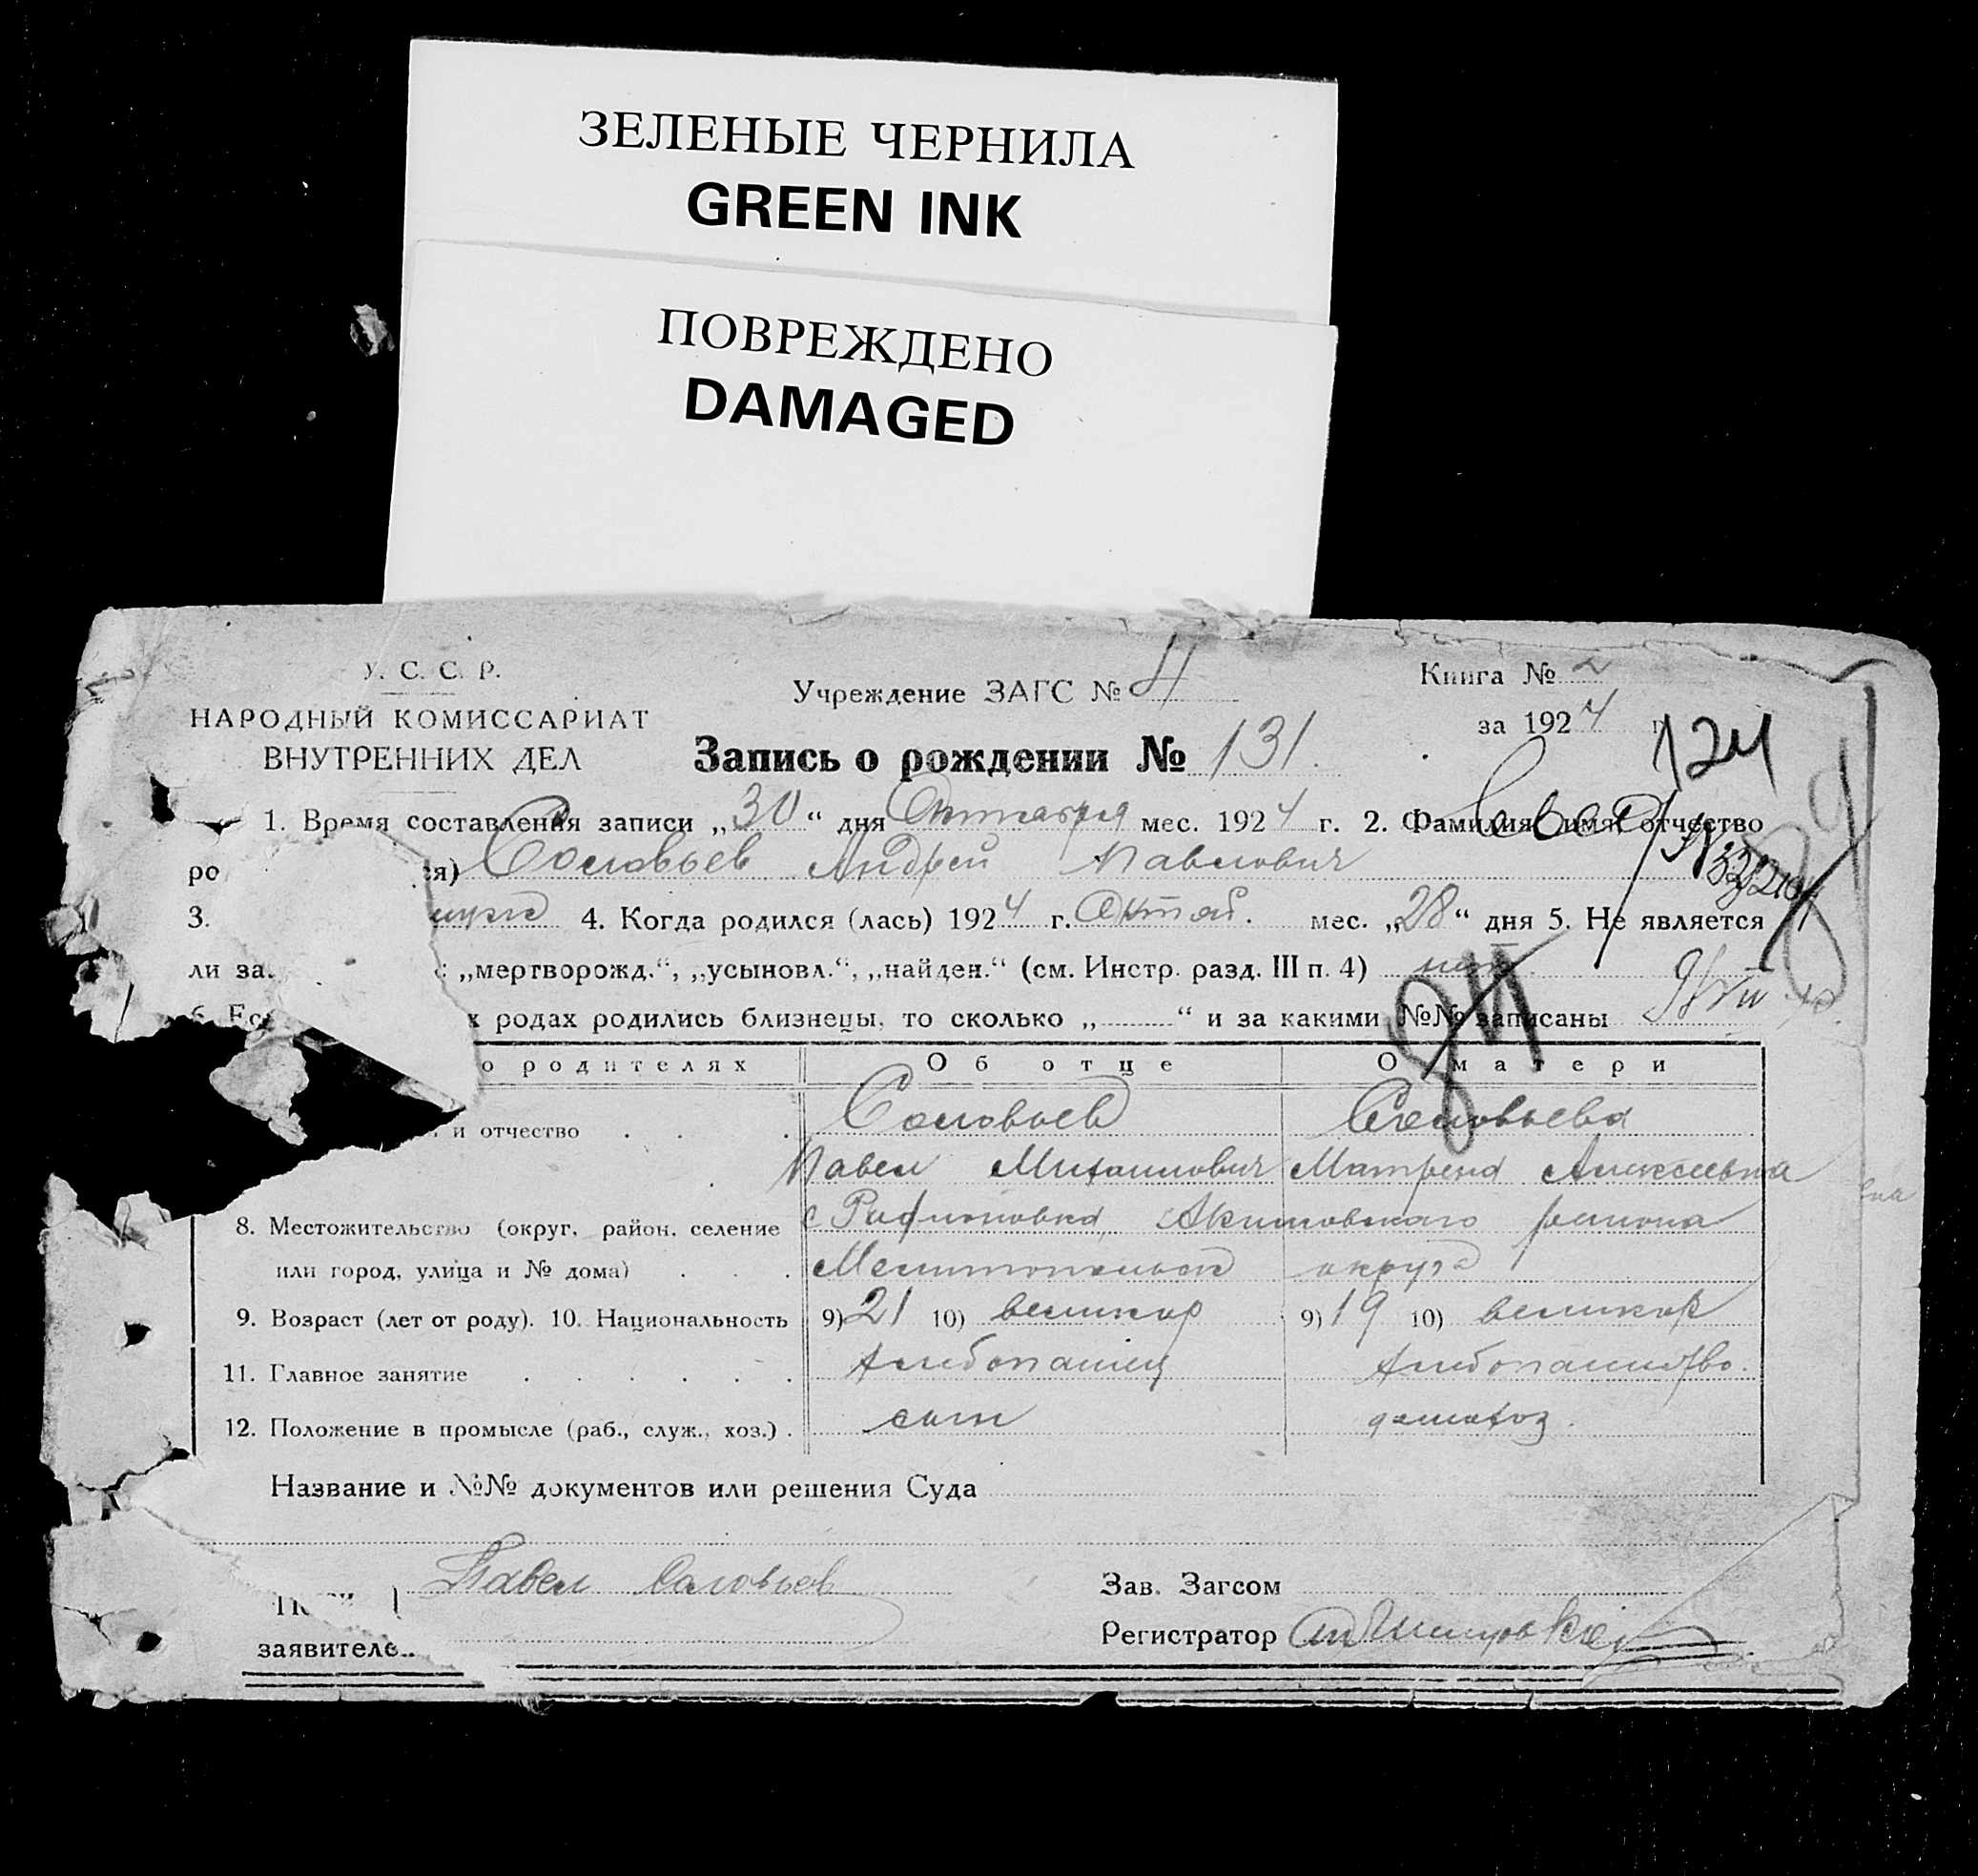 ЗЕЛЕНЫЕ ЧЕРНИЛА
GREEN INK
ПОВРЕЖДЕНО
DAMAGED
У. С. С. Р.
НАРОДНЫЙ КОМИССАРИАТ
ВНУТРЕННИХ ДЕЛ
Учреждение ЗАГС № 4
Книга № 2
за 1924 г.
124
Запись о рождении № 131.
1. Время составления записи „30“ дня Октября мес. 1924 г. 2. Фамилия, имя, отчество
ро ся) Соловьев Андрей Павлович
3. 4. Когда родился (лась) 1924 г. Октяб. мес. „28“ дня 5. Не является
ли за. „мертворожд.“, „усыновл.“, „найден.“ (см. Инстр. разд. III п. 4) нет
6. Ес х родах родились близнецы, то сколько „ “ и за какими №№ записаны
о родителях Об отце О матери
и отчество Соловьев Соловьева
Павел Михайлович Матрена Алексеевна
8. Местожительство (округ, район, селение с Родионовка, Акимовского района
или город, улица и № дома) Мелитопольск округа
9. Возраст (лет от роду). 10. Национальность 9) 21 10) великор 9) 19 10) великор
11. Главное занятие хлебопашец хлебопашество.
12. Положение в промысле (раб., служ., хоз.) сын домохоз.
Название и №№ документов или решения Суда
Павел Соловьев
заявителе
Зав. Загсом
Регистратор